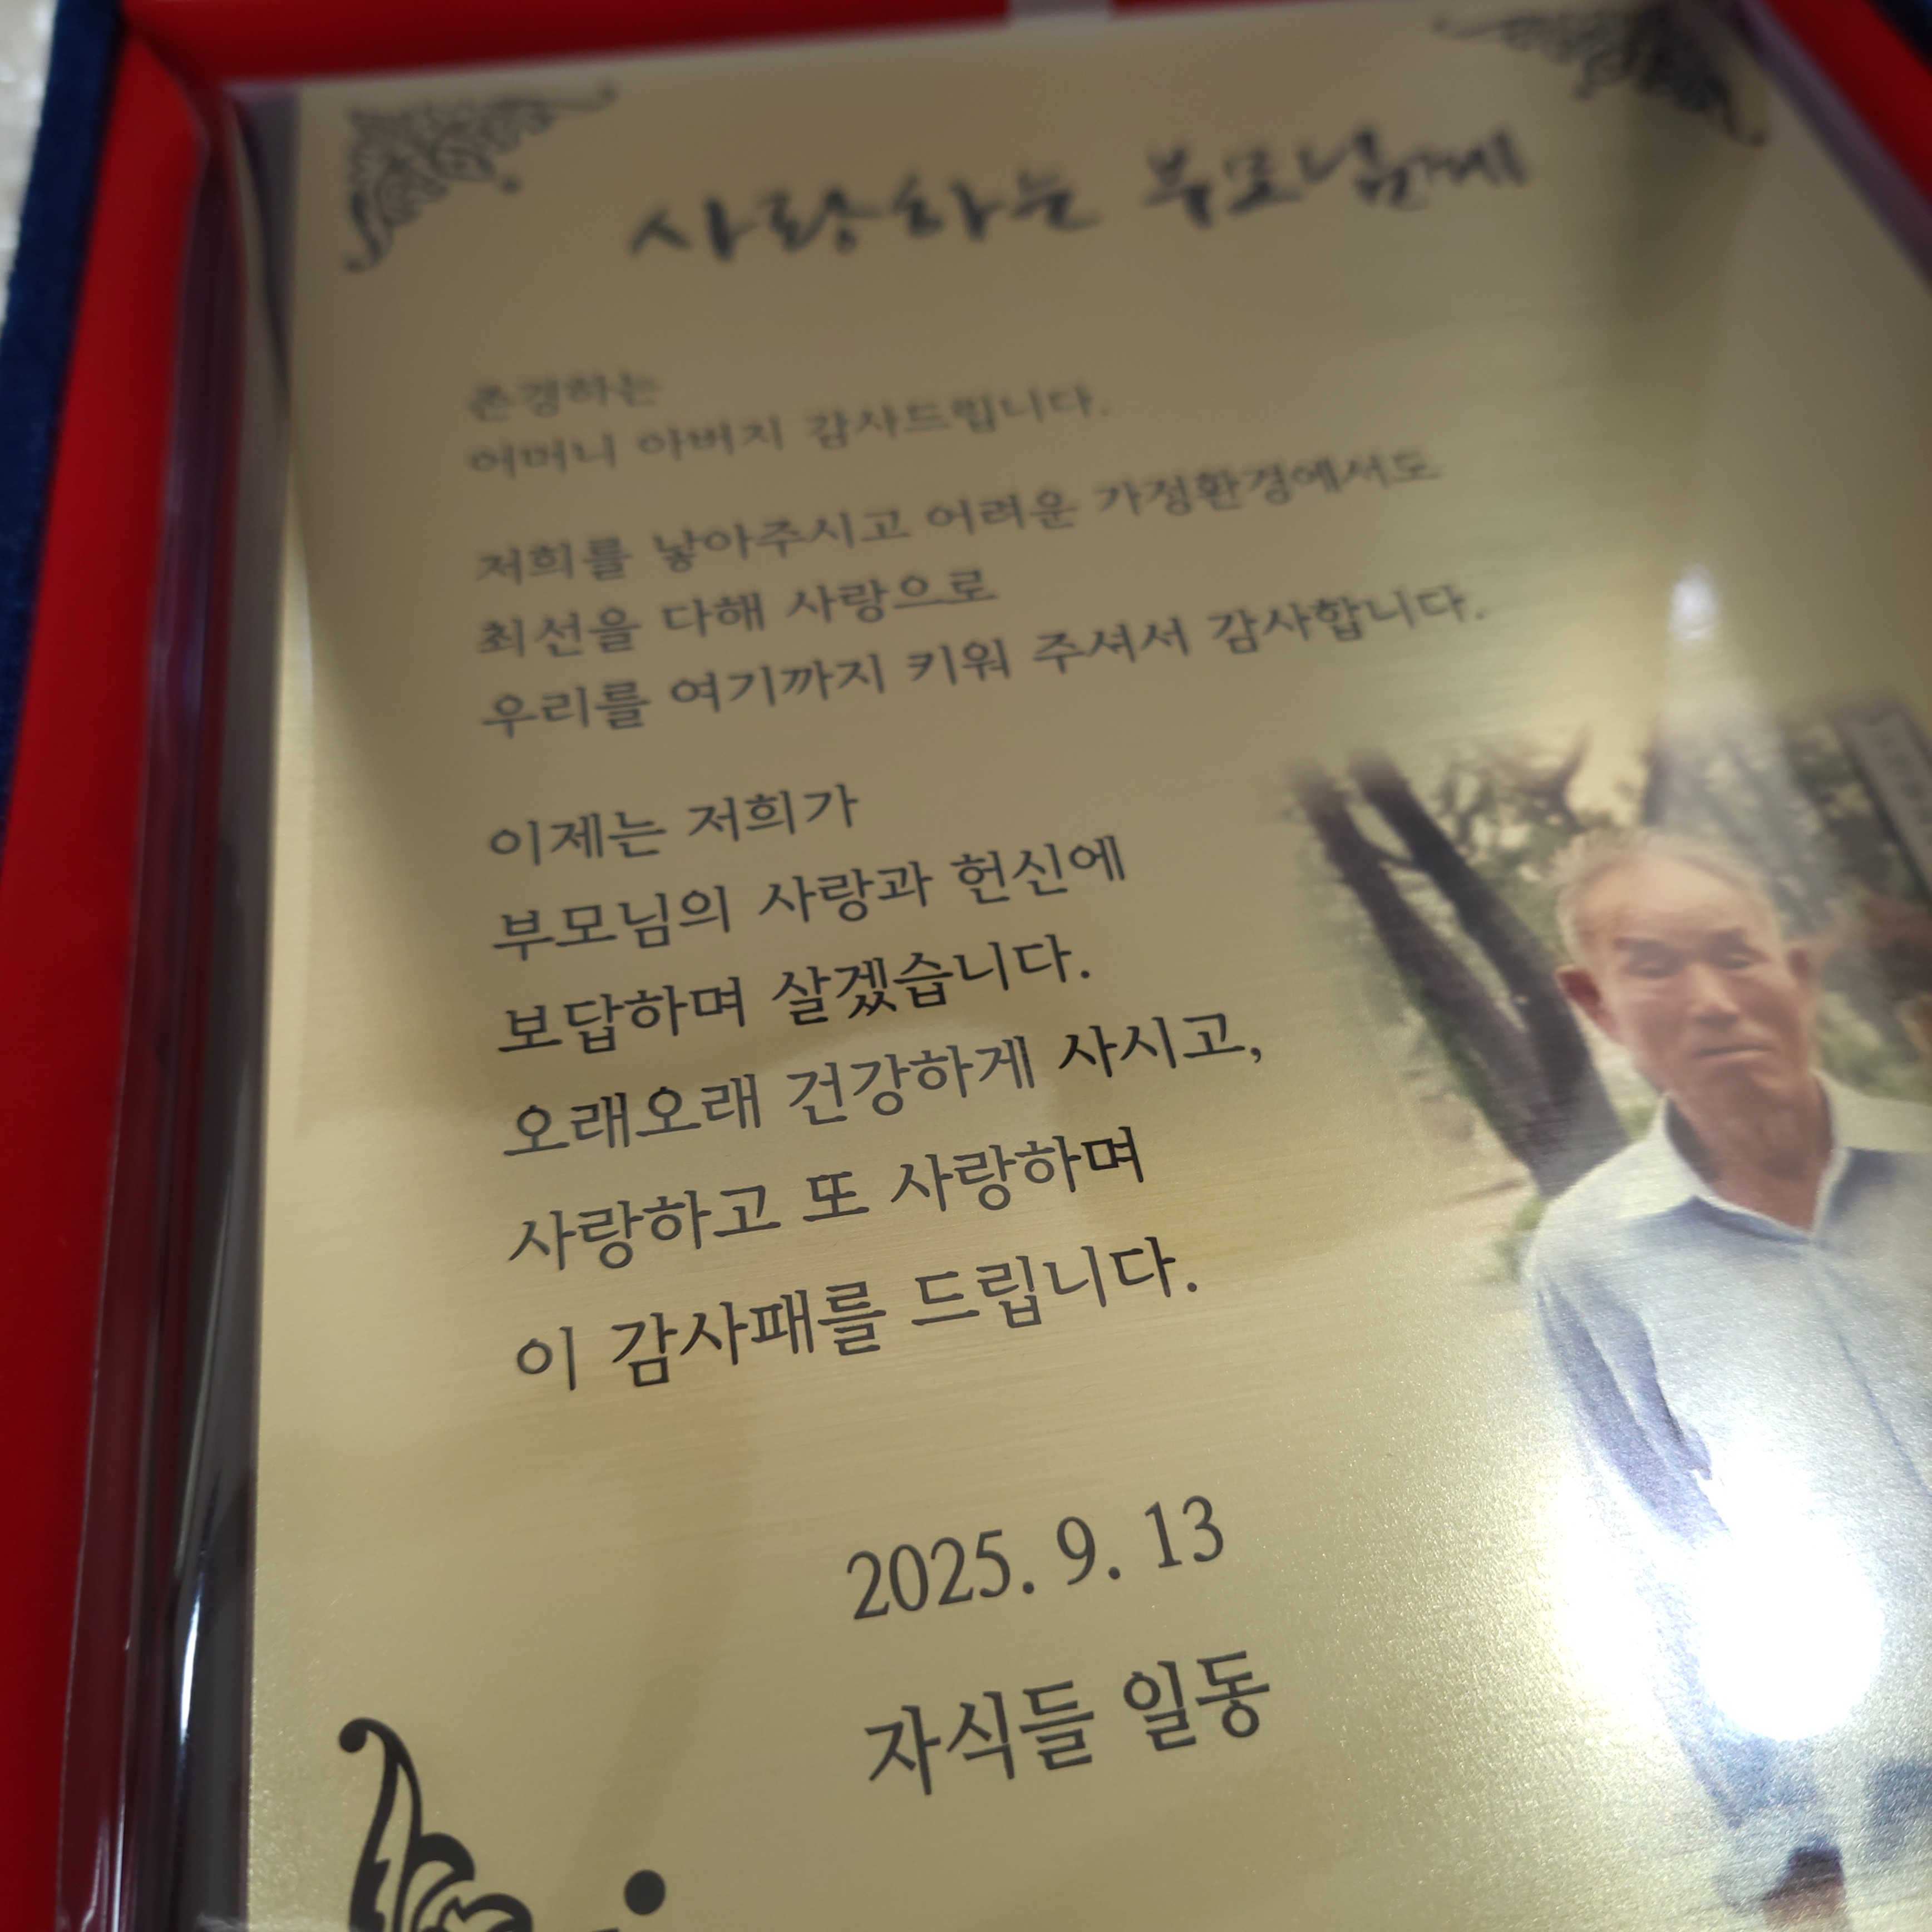 사랑하는 부모님께
존경하는
어머니 아버지 감사드립니다.
저희를 낳아주시고 어려운 가정환경에서도
최선을 다해 사랑으로
우리를 여기까지 키워 주셔서 감사합니다.
이제는 저희가
부모님의 사랑과 헌신에
보답하며 살겠습니다.
오래오래 건강하게 사시고,
사랑하고 또 사랑하며
이 감사패를 드립니다.
2025. 9. 13
자식들 일동